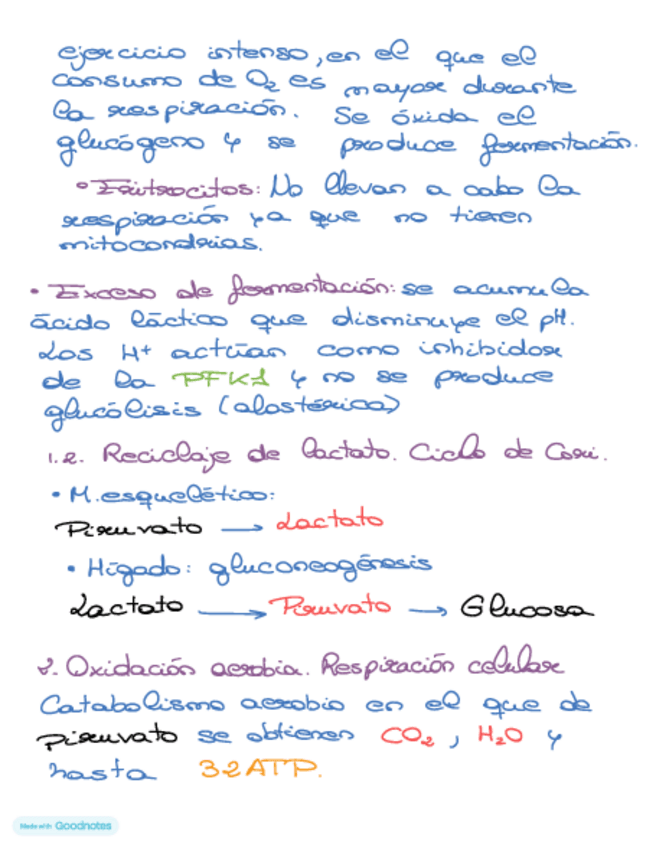 ejercicio intenso, en el que el
consumo de O₂ es mayor durante
la respiración. Se óxida el
glucógeno y se produce fermentación.
• Eritrocitos: No llevan a cabo la
respiración ya que no tienen
mitocondrias.
• Exceso de fermentación: se acumula
ácido láctico que disminuye el pH.
Los H⁺ actúan como inhibidor
de la PFK1 y no se produce
glucólisis (alostérica)
1.2. Reciclaje de lactato. Ciclo de Cori.
• M. esquelético:
Piruvato → Lactato
• Hígado: gluconeogénesis
Lactato → Piruvato → Glucosa
2. Oxidación aerobia. Respiración celular
Catabolismo aerobio en el que de
piruvato se obtienen CO₂, H₂O y
hasta 32 ATP.
Made with Goodnotes